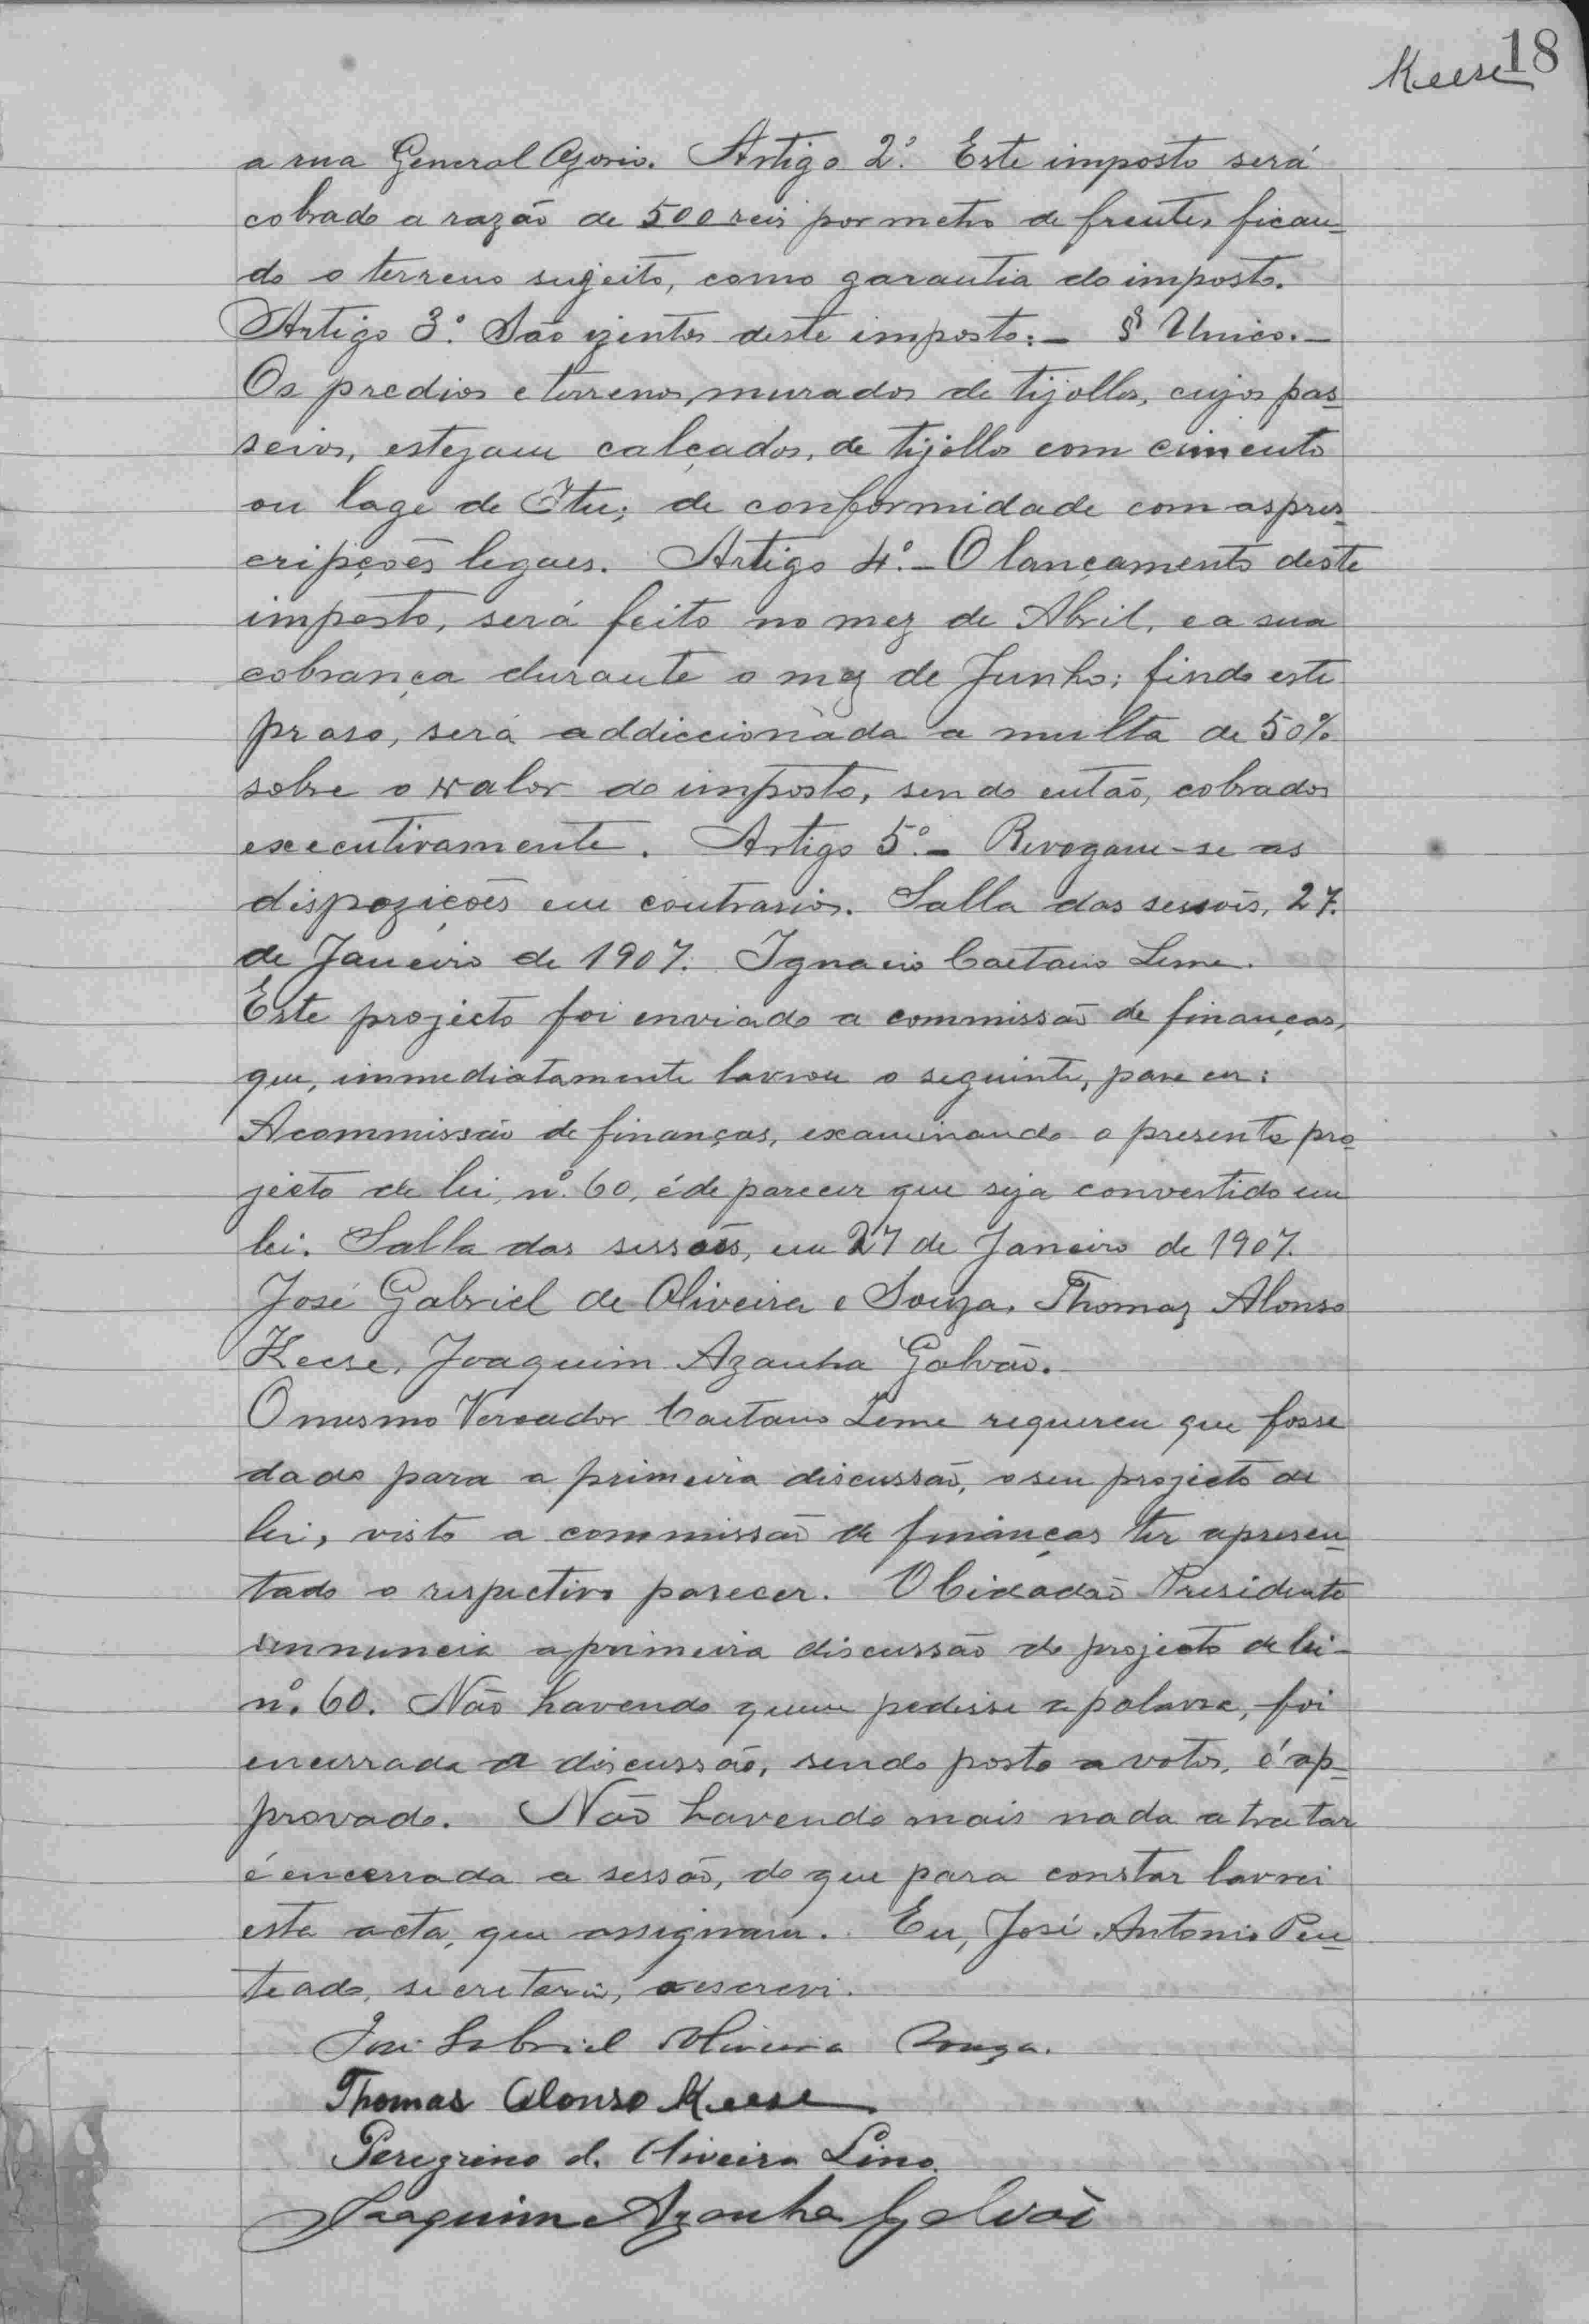 18
Keese
a rua General Ozorio. Artigo 2º. Este imposto será
cobrado a razão de 500 reis por metro de frentes fican-
do o terreno sugeito, como garantia do imposto.
Artigo 3º. São izentos deste imposto:- § Unico.-
Os predios e terrenos, murados de tijollos, cujos pas-
seios, estejam calçados, de tijollos com cimento
ou lage de Itu; de conformidade com as pres-
cripções legaes. Artigo 4º.- O lançamento deste
imposto, será feito no mez de Abril, e a sua
cobrança durante o mez de Junho; findo este
praso, será addiccionada a multa de 50%
sobre o valor do imposto, sendo então, cobrados
executivamente. Artigo 5º.- Revogam-se as
dispozições em contrarios. Salla das sessois, 27.
de Janeiro de 1907. Ignacio Caetano Leme.
Este projecto foi enviado a commissão de finanças,
que, immediatamente lavrou o seguinte, parecer:
A commissão de finanças, examinando o presente pro-
jecto de lei, nº. 60, é de parecer que seja convertido em
lei. Salla das sessões, em 27 de Janeiro de 1907.
José Gabriel de Oliveira e Souza. Thomaz Alonso
Keese. Joaquim Azanha Galvão.
O mesmo Vereador Caetano Leme requereu que fosse
dado para a primeira discussão, o seu projecto de
lei, visto a commissão de finanças ter apresen-
tado o respectivo parecer. O Cidadão Presidente
annuncia a primeira discussão do projecto de lei-
nº. 60. Não havendo quem pedisse a palavra, foi
encerrada a discussão, sendo posto a votos, é ap-
provado. Não havendo mais nada a tratar
é encerrada a sessão, do que para constar lavrei
esta acta, que assignam. Eu, José Antonio Pen-
teado, secretario, o escrevi.
José Gabriel Oliveira Souza.
Thomas Alonso Keese
Peregrino d. Oliveira Lino
Joaquim Azanha Galvão